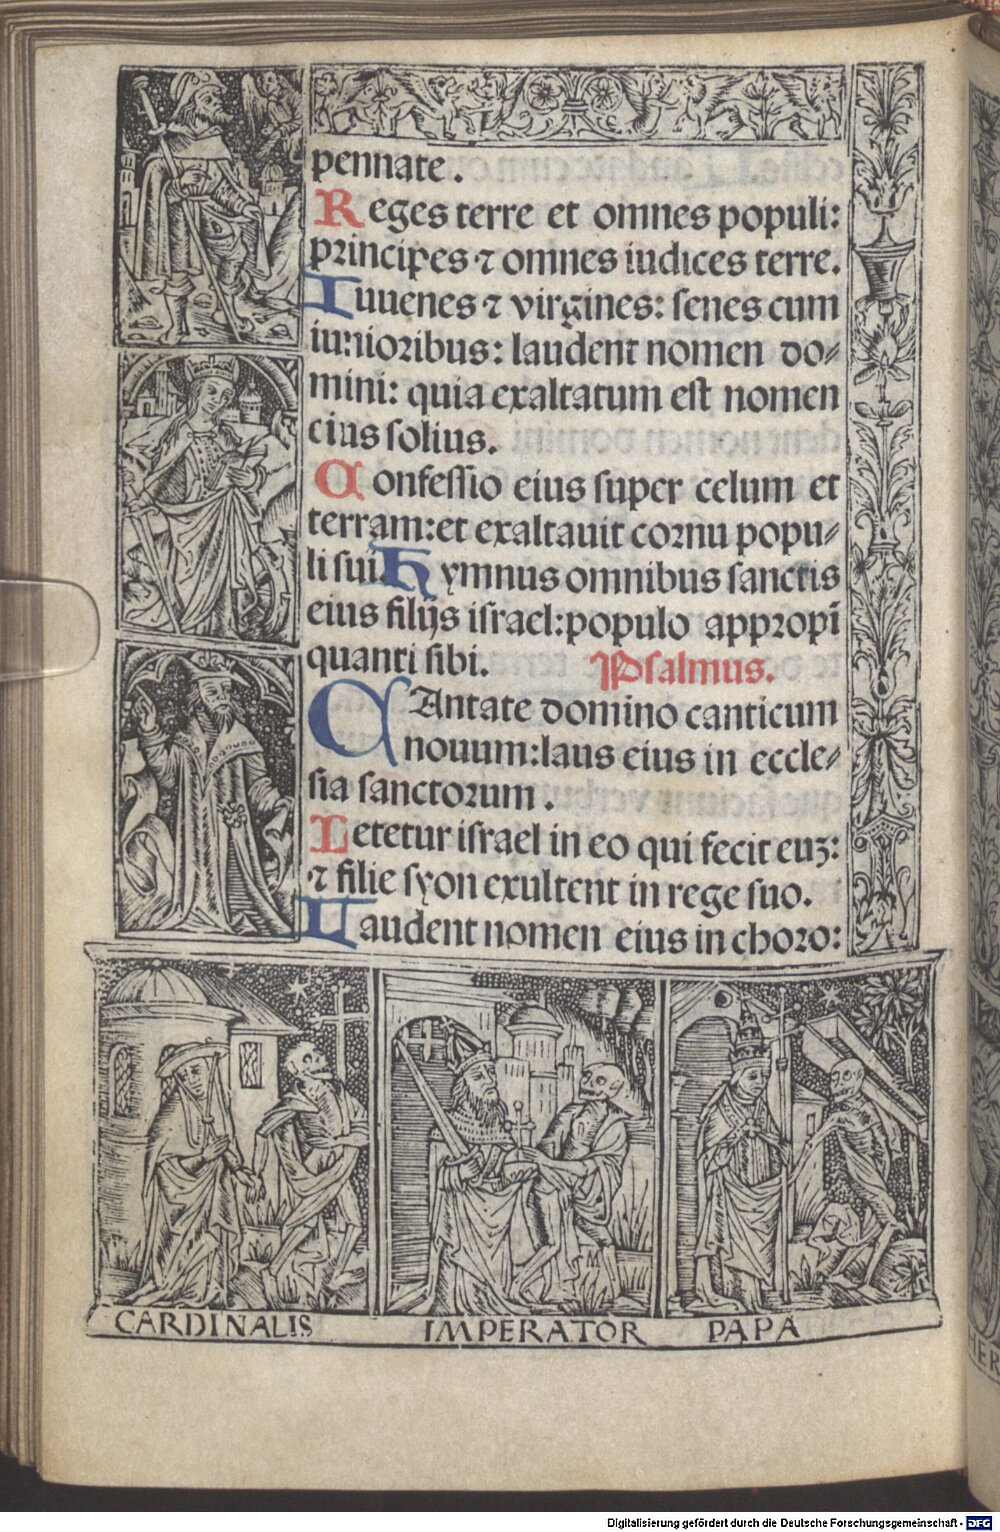 pennate.
Reges terre et omnes populi:
principes ⁊ omnes iudices terre.
Iuuenes ⁊ virgines: senes cum
iunioribus: laudent nomen do⸗
mini: quia exaltatum est nomen
eius solius.
Confessio eius super celum et
terram:et exaltauit cornu popu⸗
li sui. Hymnus omnibus sanctis
eius filijs israel:populo appropī
quanti sibi. Psalmus.
CAntate domino canticum
nouum:laus eius in eccle⸗
sia sanctorum.
Letetur israel in eo qui fecit euꝫ:
⁊ filie syon exultent in rege suo.
Laudent nomen eius in choro:
CARDINALIS IMPERATOR PAPA
HER
Digitalisierung gefördert durch die Deutsche Forschungsgemeinschaft - DFG